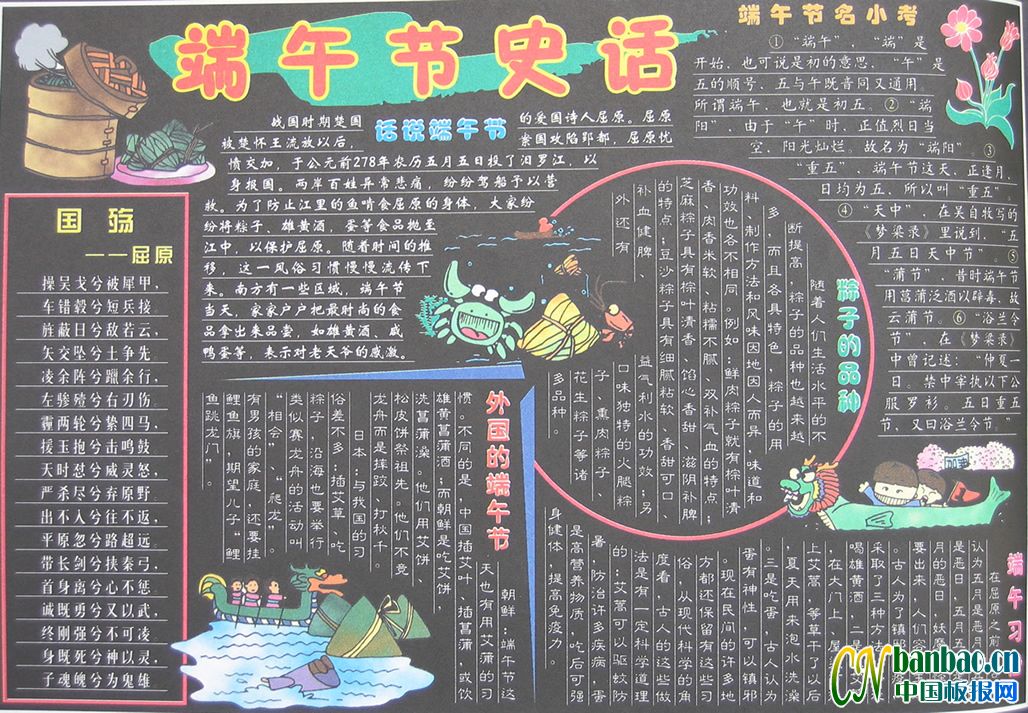 端午节史话
话说端午节
战国时期楚国
的爱国诗人屈原。屈原
被楚怀王流放以后，
秦国攻陷郢都，屈原忧
愤交加，于公元前278年农历五月五日投了汨罗江，以
身报国。两岸百姓异常悲痛，纷纷驾船予以营
救。为了防止江里的鱼啃食屈原的身体，大家纷
纷将粽子、雄黄酒，蛋等食品抛至
江中，以保护屈原。随着时间的推
移，这一风俗习惯慢慢流传下
来。南方有一些区域，端午节
当天，家家户户把最时尚的食
品拿出来品尝，如雄黄酒、咸
鸭蛋等，表示对老天爷的感激。
端午节名小考
①“端午”，“端”是
开始，也可说是初的意思，“午”是
五的顺号，五与午既音同又通用。
所谓端午，也就是初五。②“端
阳”，由于“午”时，正值烈日当
空，阳光灿烂。故名为“端阳”。③
“重五”，端午节这天，正逢月，
日均为五，所以叫“重五”。
④“天中”，在吴自牧写的
《梦粱录》里说到，“五
月五日天中节”。⑤
“蒲节”，昔时端午节
用菖蒲泛酒以辟毒，故
云蒲节。⑥“浴兰令
节”，在《梦粱录》
中曾记述：“仲夏一
日。禁中宰执以下公
服罗衫。五日重五
节，又曰浴兰令节。”
国殇
——屈原
操吴戈兮被犀甲，
车错毂兮短兵接
旌蔽日兮敌若云，
矢交坠兮士争先
凌余阵兮躐余行，
左骖殪兮右刃伤
霾两轮兮絷四马，
援玉抱兮击鸣鼓
天时怼兮威灵怒，
严杀尽兮弃原野
出不入兮往不返，
平原忽兮路超远
带长剑兮挟秦弓，
首身离兮心不惩
诚既勇兮又以武，
终刚强兮不可凌
身既死兮神以灵，
子魂魄兮为鬼雄
粽子的品种
随着人们生活水平的不
断提高，粽子的品种也越来越
多，而且各具特色，粽子的用
料、制作方法和风味因地因人而异，味道和
功效也各不相同。例如：鲜肉粽子就有粽叶清
香、肉香米软、粘糯不腻、双补气血的特点；
芝麻粽子具有粽叶清香、馅心香甜、滋阴补脾
的特点；豆沙粽子具有细腻粘软、香甜可口、
补血健脾、
益气利水的功效；另
外还有
口味独特的火腿粽
子、熏肉粽子、
花生粽子等诸
多品种。
外国的端午节
朝鲜：端午节这
天也有用艾蒲的习
惯。不同的是，中国插艾叶、插菖蒲，或饮
雄黄菖蒲酒；而朝鲜是吃艾饼，
洗菖蒲澡。他们用艾饼、
松皮饼祭祖先。他们不竞
龙舟而是摔跤、打秋千。
日本：与我国的习
俗差不多：插艾草，吃
粽子，沿海也要举行
类似赛龙舟的活动叫
“相会”、“爬龙”。
有男孩的家庭，还要挂
鲤鱼旗，期望儿子“鲤
鱼跳龙门”。
端午习
在屈原之前
认为五月是恶月
是恶日，五月五
月的恶日，妖魔
要出来，人们容
。古人为了镇邪
采取了三种方
喝雄黄酒，二是
在大门上、屋
上艾蒿，等草干了以后
夏天用来泡水洗澡
三是吃蛋，古人认为
蛋有神性，可以镇邪
。现在民间的许多地
方都还保留有这些习
俗，从现代科学的角
度看，古人的这些做
法是有一定科学道理
的：艾蒿可以驱蚊防
暑，防治许多疾病，蛋
是高营养物质，吃后可强
身健体，提高免疫力。
CN banbao.cn
中国板报网